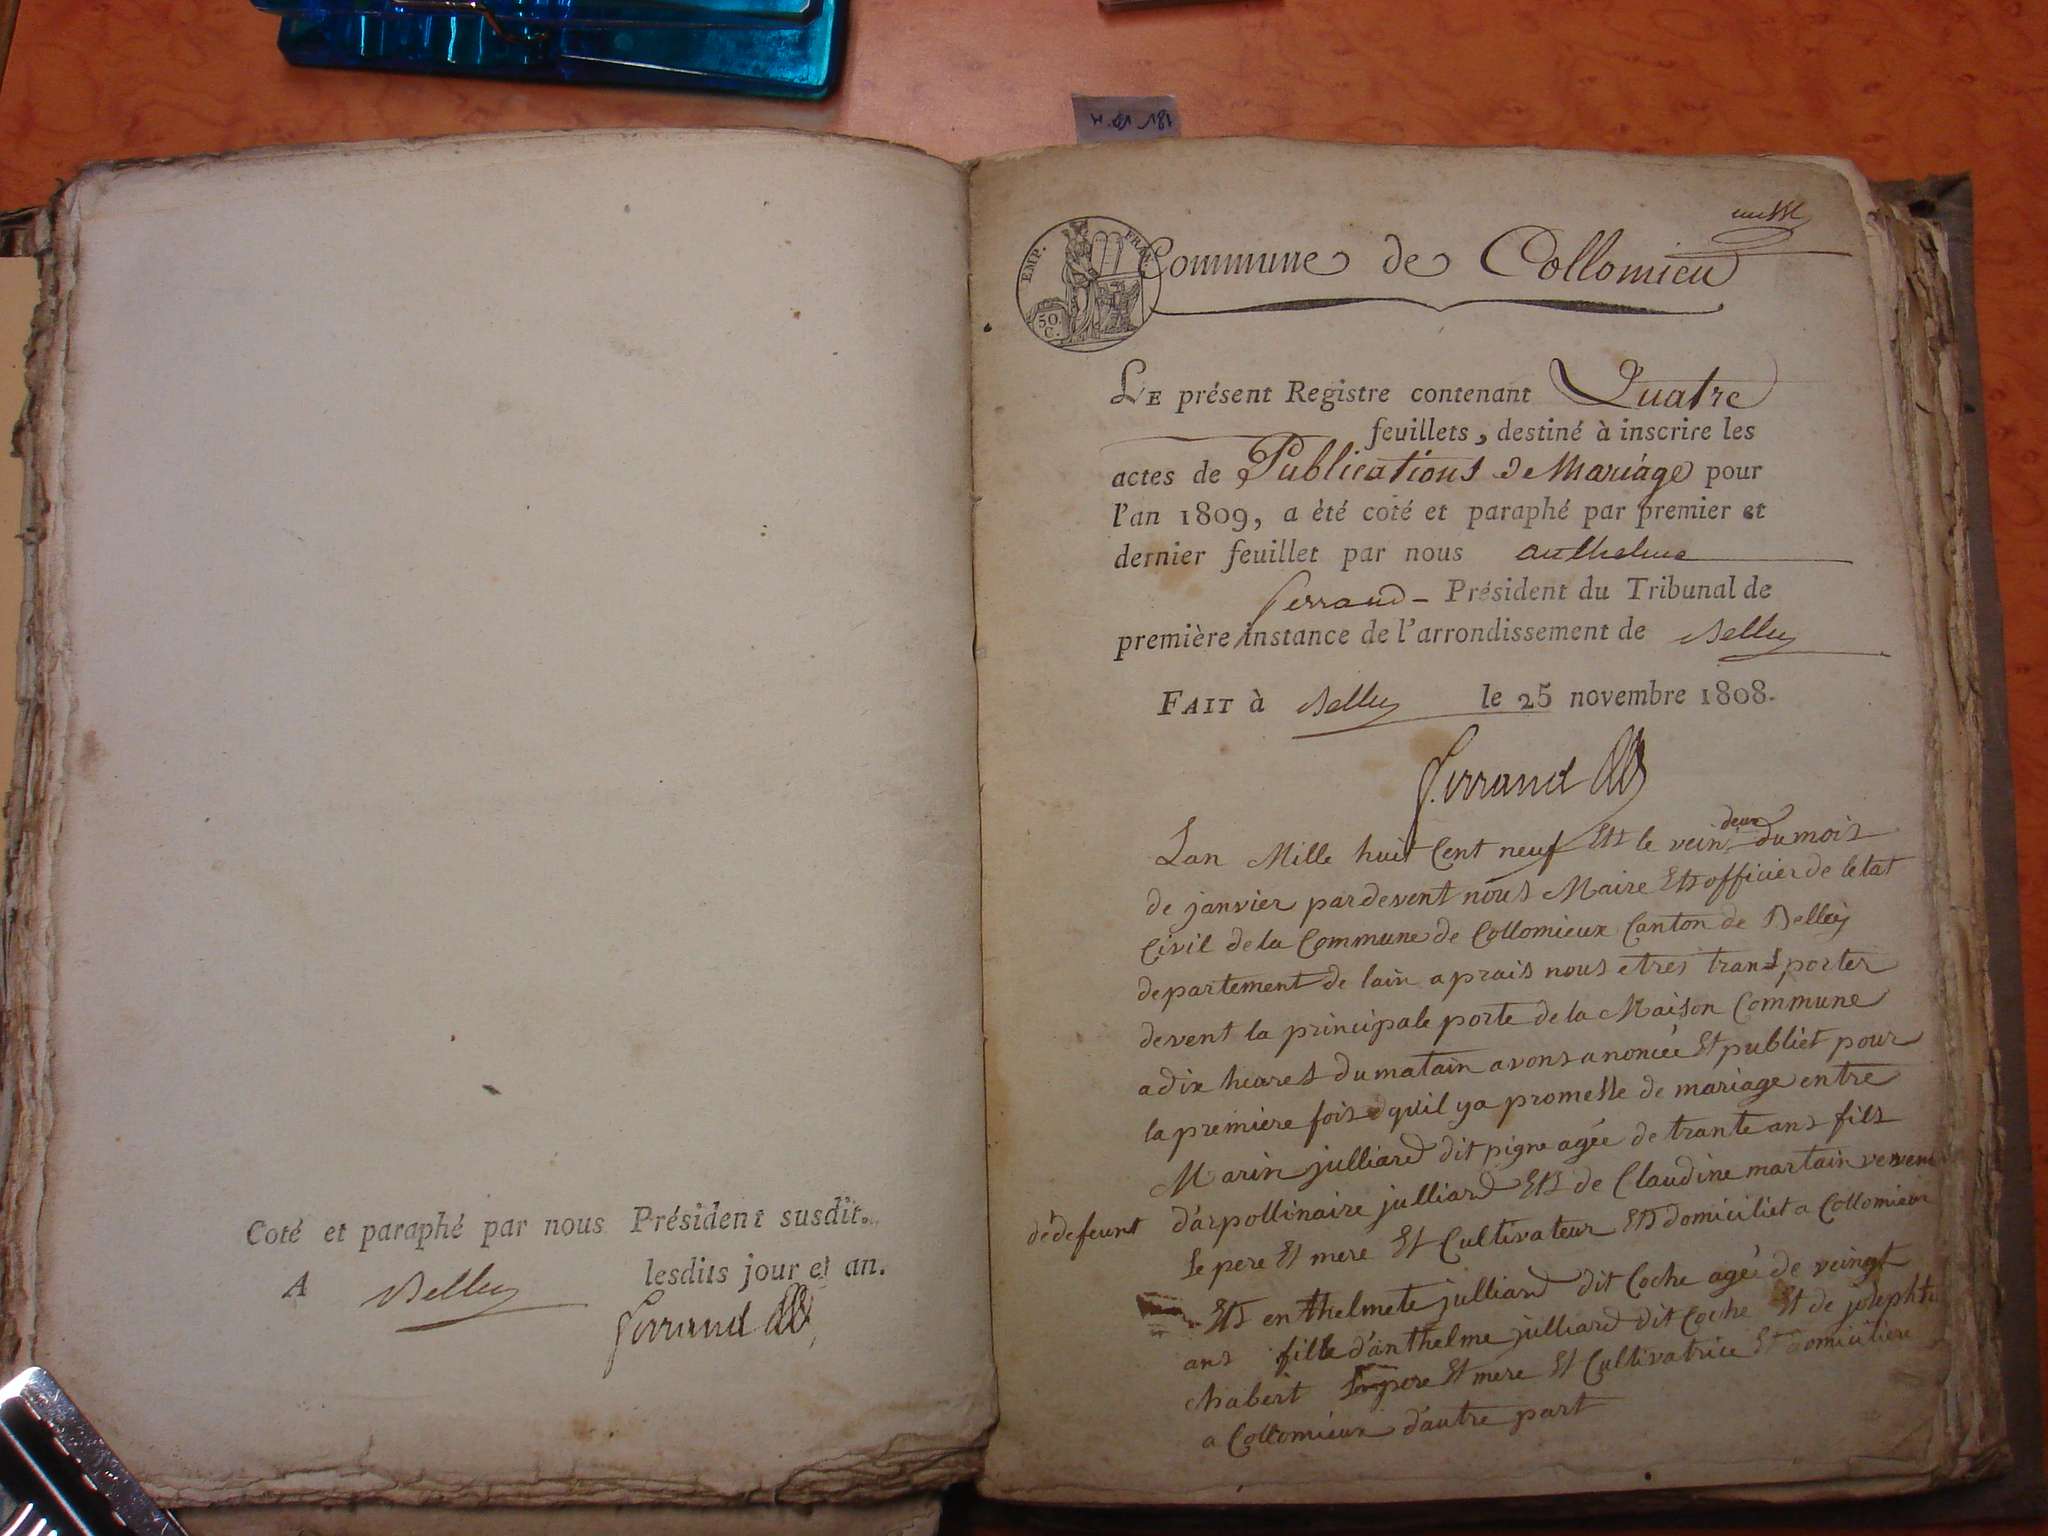 Coté et paraphé par nous Président susdit.
A Belley lesdits jour et an.
Ferrand
EMP. FRAN.
50 C.
Commune de Collomieu
LE présent Registre contenant Quatre
feuillets, destiné à inscrire les
actes de Publications de Mariage pour
l'an 1809, a été coté et paraphé par premier et
dernier feuillet par nous anthelme
ferrand - Président du Tribunal de
première instance de l'arrondissement de Belley
FAIT à Belley le 25 novembre 1808.
Ferrand
Lan Mille huit Cent neuf Et le vein deux du mois
de janvier pardevent nous Maire Et officier de letat
Civil de la Commune de Collomieux Canton de Belley
departement de lain aprais nous etres transporter
devent la principale porte de la Maison Commune
a dix heures du matain avons anoncée Et publiét pour
la premiere fois qu'il ya promesse de mariage entre
Marin julliard dit pigne agée de trante ans fils
dédefeunt d'arpollinaire julliard Et de Claudine martain
se pere Et mere Et Cultivateur Et domiciliet a Collomieux
Et enthelmete julliard dit Coche agé de veingt
ans fille d'anthelme julliard dit Coche Et de josephte
chabert pere Et mere Et Cultivatrice Et domiciliere
a Collomieux d'autre part